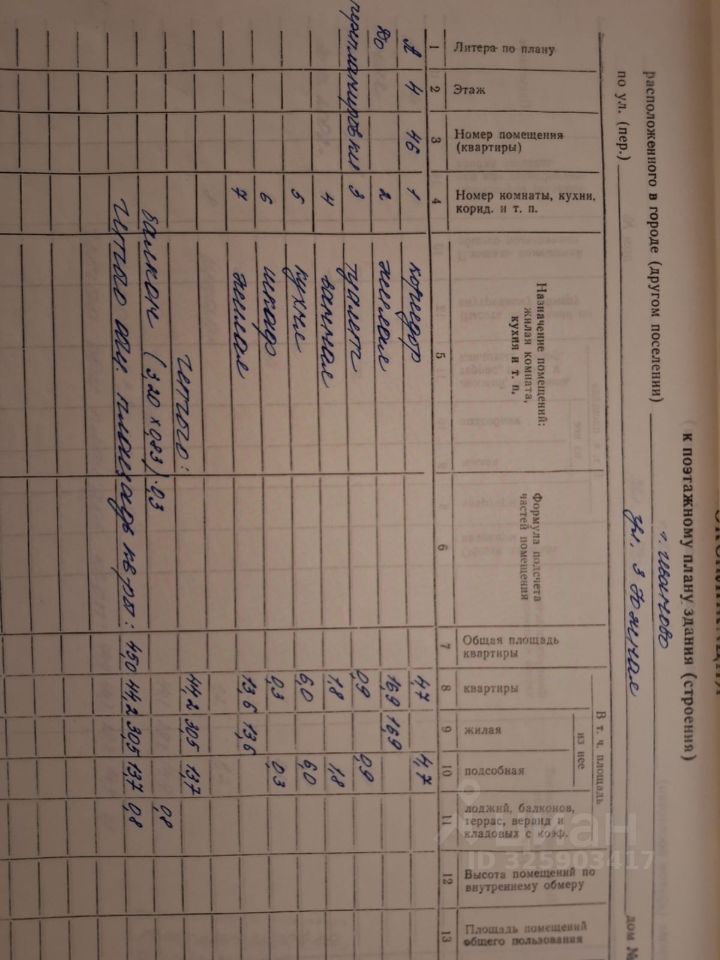 ЭКСПЛИКАЦИЯ
к поэтажному плану здания (строения)
расположенного в городе (другом поселении) г. Иваново
по ул. (пер.) дом №
Литера по плану
Этаж
Номер помещения (квартиры)
Номер комнаты, кухни, корид. и т. п.
Назначение помещений: жилая комната, кухня и т. п.
Формула подсчета частей помещения
Общая площадь квартиры
В т. ч. площадь
квартиры
из нее
жилая
подсобная
лоджий, балконов, террас, веранд и кладовых с коэф.
Высота помещений по внутреннему обмеру
Площадь помещений общего пользования
1 2 3 4 5 6 7 8 9 10 11 12 13
А 4 46 1 коридор 4,7 4,7
До 2 жилая 16,9 16,9
перепланировки 3 туалет 0,9 0,9
4 ванная 1,8 1,8
5 кухня 6,0 6,0
6 шкаф 0,3 0,3
7 жилая 13,6 13,6
Итого: 44,2 30,5 13,7
Балкон (3.20 х 0,83) · 0,3 0,8
Итого общ. площадь кв-ры: 45,0 44,2 30,5 13,7 0,8
Циан
ID 325903417